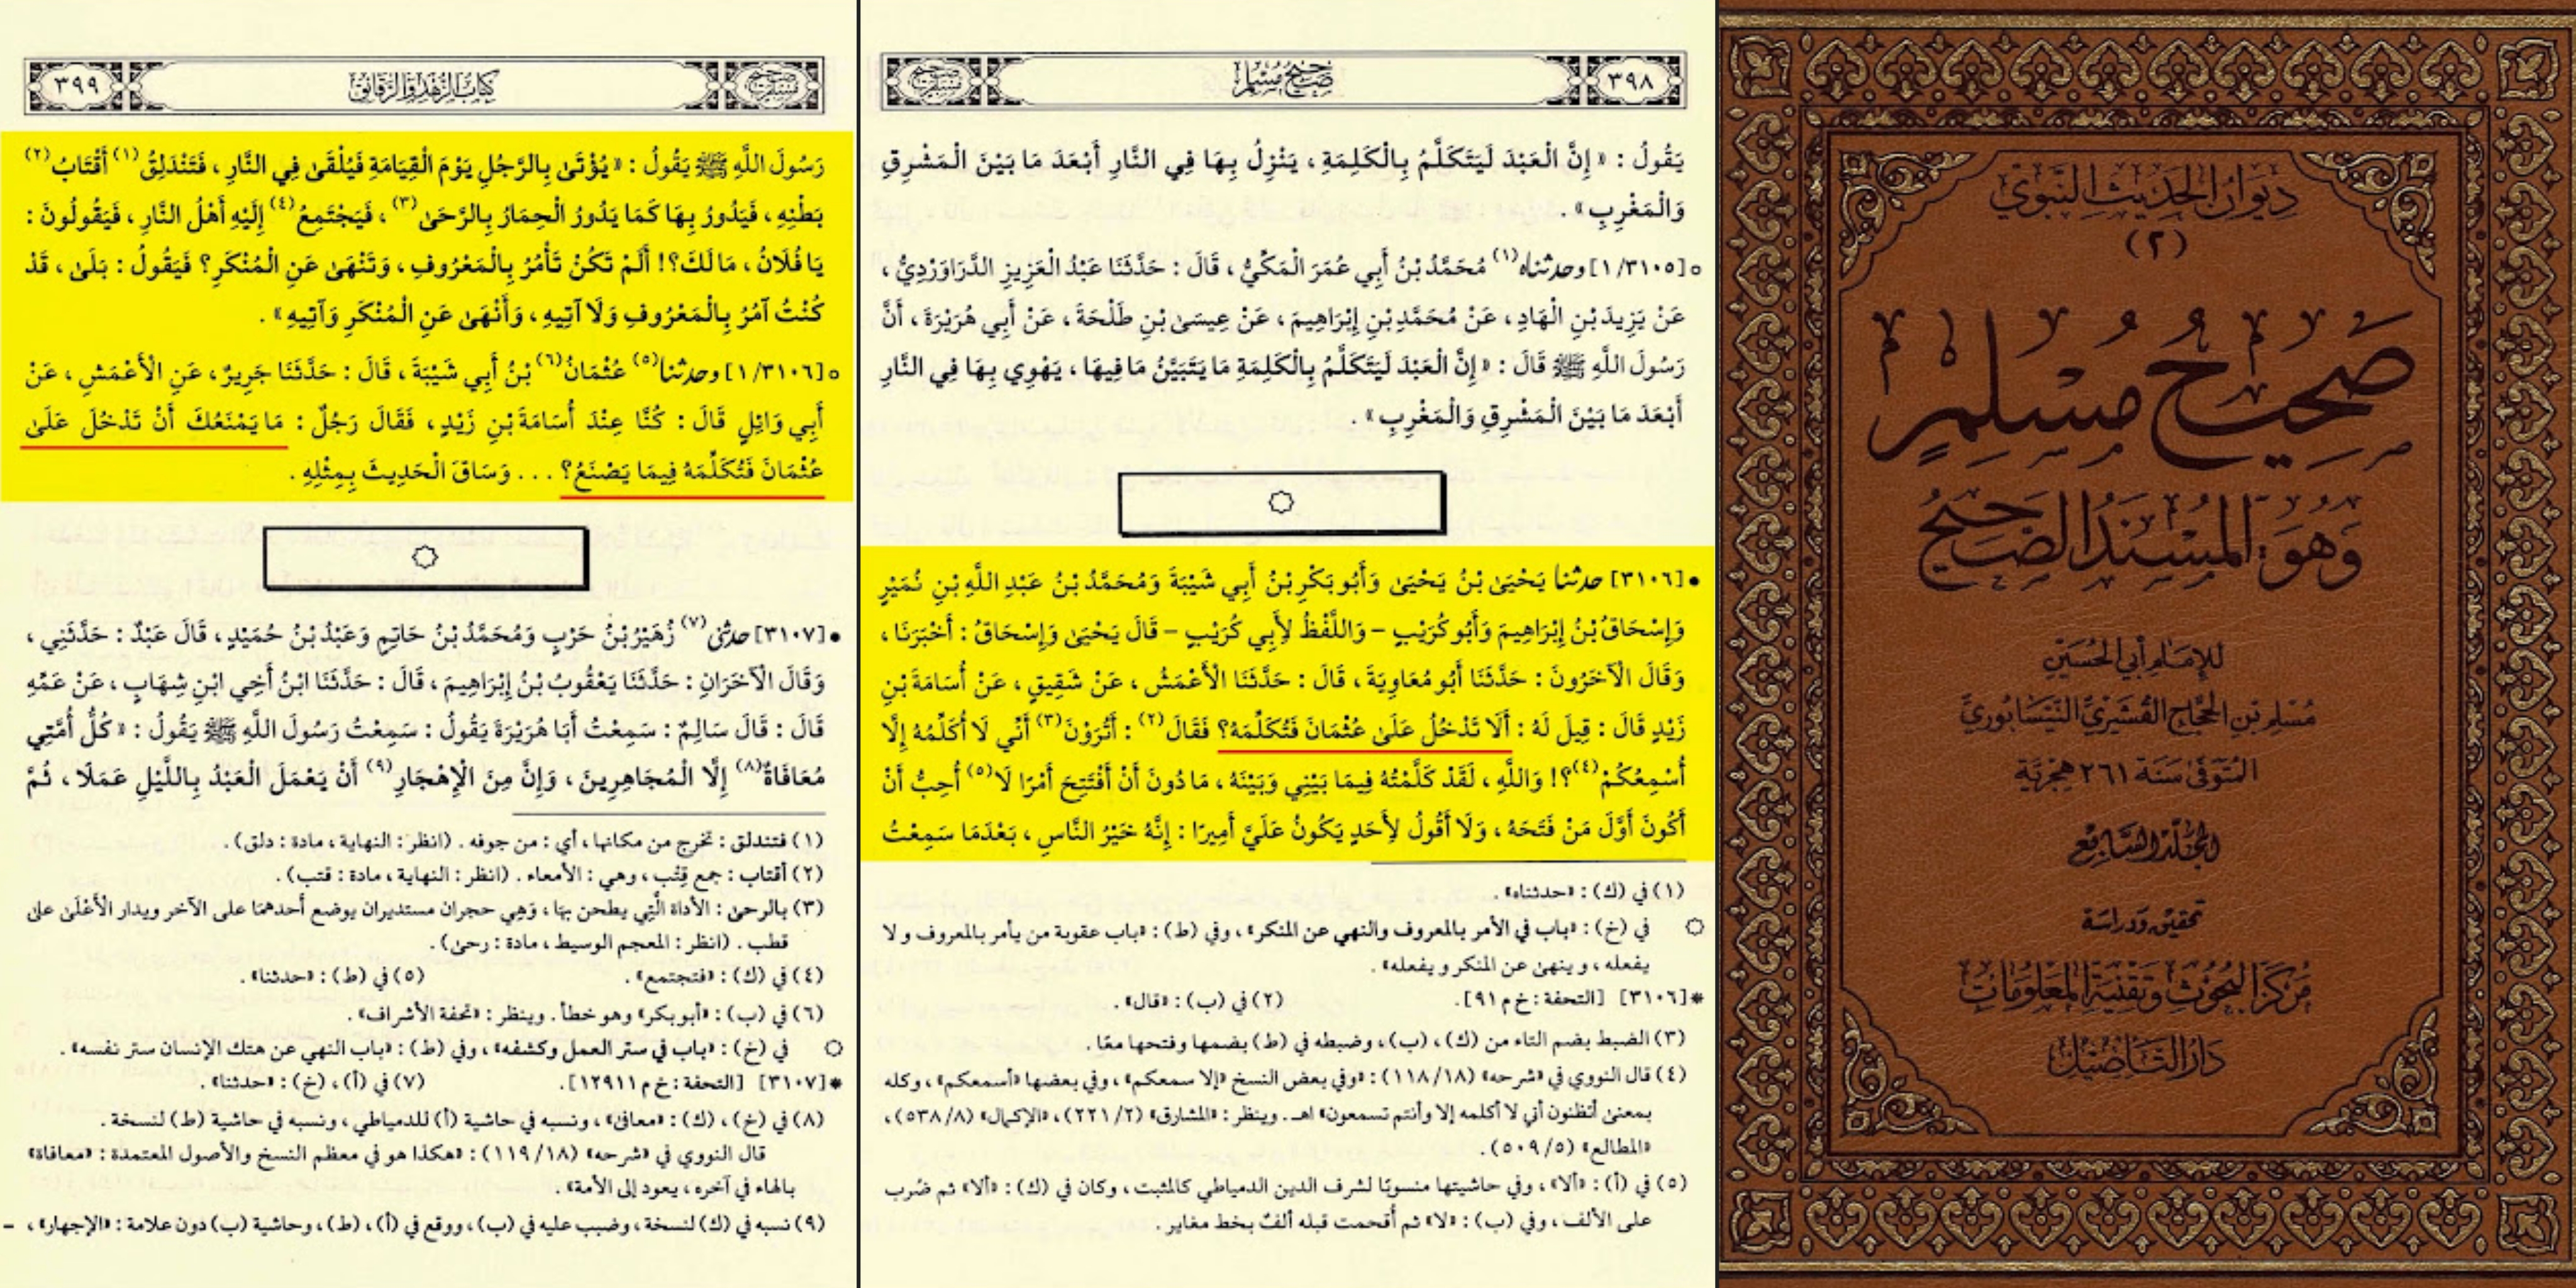 ديوان الحديث النبوي
(٢)
صحيح مسلم
وهو: المسند الصحيح
للإمام أبي الحسين
مسلم بن الحجاج القشيري النيسابوري
المتوفى سنة ٢٦١ هجرية
المجلد السابع
تحقيق ودراسة
مركز البحوث وتقنية المعلومات
دار التأصيل
٣٩٨
صحيح مسلم
يَقُولُ : «إِنَّ الْعَبْدَ لَيَتَكَلَّمُ بِالْكَلِمَةِ ، يَنْزِلُ بِهَا فِي النَّارِ أَبْعَدَ مَا بَيْنَ الْمَشْرِقِ
وَالْمَغْرِبِ» .
○[٣١٠٥/ ١] وحدثناه(١) مُحَمَّدُ بْنُ أَبِي عُمَرَ الْمَكِّيُّ ، قَالَ : حَدَّثَنَا عَبْدُ الْعَزِيزِ الدَّرَاوَرْدِيُّ ،
عَنْ يَزِيدَ بْنِ الْهَادِ ، عَنْ مُحَمَّدِ بْنِ إِبْرَاهِيمَ ، عَنْ عِيسَى بْنِ طَلْحَةَ ، عَنْ أَبِي هُرَيْرَةَ ، أَنَّ
رَسُولَ اللَّهِ ﷺ قَالَ : «إِنَّ الْعَبْدَ لَيَتَكَلَّمُ بِالْكَلِمَةِ مَا يَتَبَيَّنُ مَا فِيهَا ، يَهْوِي بِهَا فِي النَّارِ
أَبْعَدَ مَا بَيْنَ الْمَشْرِقِ وَالْمَغْرِبِ» .
●[٣١٠٦] حدثنا يَحْيَى بْنُ يَحْيَى وَأَبُو بَكْرِ بْنُ أَبِي شَيْبَةَ وَمُحَمَّدُ بْنُ عَبْدِ اللَّهِ بْنِ نُمَيْرٍ
وَإِسْحَاقُ بْنُ إِبْرَاهِيمَ وَأَبُو كُرَيْبٍ - وَاللَّفْظُ لِأَبِي كُرَيْبٍ - قَالَ يَحْيَى وَإِسْحَاقُ : أَخْبَرَنَا ،
وَقَالَ الْآخَرُونَ : حَدَّثَنَا أَبُو مُعَاوِيَةَ ، قَالَ : حَدَّثَنَا الْأَعْمَشُ ، عَنْ شَقِيقٍ ، عَنْ أُسَامَةَ بْنِ
زَيْدٍ قَالَ : قِيلَ لَهُ : أَلَا تَدْخُلُ عَلَى عُثْمَانَ فَتُكَلِّمَهُ؟ فَقَالَ(٢) : أَتُرَوْنَ(٣) أَنِّي لَا أُكَلِّمُهُ إِلَّا
أُسْمِعُكُمْ(٤)؟! وَاللَّهِ ، لَقَدْ كَلَّمْتُهُ فِيمَا بَيْنِي وَبَيْنَهُ ، مَا دُونَ أَنْ أَفْتَتِحَ أَمْرًا لَا(٥) أُحِبُّ أَنْ
أَكُونَ أَوَّلَ مَنْ فَتَحَهُ ، وَلَا أَقُولُ لِأَحَدٍ يَكُونُ عَلَيَّ أَمِيرًا : إِنَّهُ خَيْرُ النَّاسِ ، بَعْدَمَا سَمِعْتُ
(١) في (ك) : «حدثناه» .
۞ في (خ) : «باب في الأمر بالمعروف والنهي عن المنكر» ، وفي (ط) : «باب عقوبة من يأمر بالمعروف ولا
يفعله ، وينهى عن المنكر ويفعله» .
*[٣١٠٦] [التحفة : خ م ٩١]. (٢) في (ب) : «قال» .
(٣) الضبط بضم التاء من (ك) ، (ب) ، وضبطه في (ط) بضمها وفتحها معًا .
(٤) قال النووي في «شرحه» (١١٨/١٨) : «وفي بعض النسخ «إلا سمعكم» ، وفي بعضها «أسمعكم» ، وكله
بمعنى أتظنون أني لا أكلمه إلا وأنتم تسمعون» اهـ. وينظر : «المشارق» (٢٢١/٢) ، «الإكمال» (٥٣٨/٨) ،
«المطالع» (٥٠٩/٥) .
(٥) في (أ) : «ألا» ، وفي حاشيتها منسوبًا لشرف الدين الدمياطي كالمثبت ، وكان في (ك) : «ألا» ثم ضُرب
على الألف ، وفي (ب) : «لا» ثم أقحمت قبله ألفٌ بخط مغاير .
كتاب الزهد والرقائق
٣٩٩
رَسُولَ اللَّهِ ﷺ يَقُولُ : «يُؤْتَى بِالرَّجُلِ يَوْمَ الْقِيَامَةِ فَيُلْقَى فِي النَّارِ ، فَتَنْدَلِقُ(١) أَقْتَابُ(٢)
بَطْنِهِ ، فَيَدُورُ بِهَا كَمَا يَدُورُ الْحِمَارُ بِالرَّحَى(٣) ، فَيَجْتَمِعُ(٤) إِلَيْهِ أَهْلُ النَّارِ ، فَيَقُولُونَ :
يَا فُلَانُ ، مَا لَكَ؟! أَلَمْ تَكُنْ تَأْمُرُ بِالْمَعْرُوفِ ، وَتَنْهَى عَنِ الْمُنْكَرِ؟ فَيَقُولُ : بَلَى ، قَدْ
كُنْتُ آمُرُ بِالْمَعْرُوفِ وَلَا آتِيهِ ، وَأَنْهَى عَنِ الْمُنْكَرِ وَآتِيهِ» .
○[٣١٠٦/ ١] وحدثنا(٥) عُثْمَانُ(٦) بْنُ أَبِي شَيْبَةَ ، قَالَ : حَدَّثَنَا جَرِيرٌ ، عَنِ الْأَعْمَشِ ، عَنْ
أَبِي وَائِلٍ قَالَ : كُنَّا عِنْدَ أُسَامَةَ بْنِ زَيْدٍ ، فَقَالَ رَجُلٌ : مَا يَمْنَعُكَ أَنْ تَدْخُلَ عَلَى
عُثْمَانَ فَتُكَلِّمَهُ فِيمَا يَصْنَعُ؟ . . . وَسَاقَ الْحَدِيثَ بِمِثْلِهِ .
●[٣١٠٧] حدثني(٧) زُهَيْرُ بْنُ حَرْبٍ وَمُحَمَّدُ بْنُ حَاتِمٍ وَعَبْدُ بْنُ حُمَيْدٍ ، قَالَ عَبْدٌ : حَدَّثَنِي ،
وَقَالَ الْآخَرَانِ : حَدَّثَنَا يَعْقُوبُ بْنُ إِبْرَاهِيمَ ، قَالَ : حَدَّثَنَا ابْنُ أَخِي ابْنِ شِهَابٍ ، عَنْ عَمِّهِ
قَالَ : قَالَ سَالِمٌ : سَمِعْتُ أَبَا هُرَيْرَةَ يَقُولُ : سَمِعْتُ رَسُولَ اللَّهِ ﷺ يَقُولُ : «كُلُّ أُمَّتِي
مُعَافَاةٌ(٨) إِلَّا الْمُجَاهِرِينَ ، وَإِنَّ مِنَ الْإِهْجَارِ(٩) أَنْ يَعْمَلَ الْعَبْدُ بِاللَّيْلِ عَمَلًا ، ثُمَّ
(١) فتندلق : تخرج من مكانها ، أي : من جوفه . (انظر : النهاية ، مادة : دلق) .
(٢) أقتاب : جمع قِتْب ، وهي : الأمعاء . (انظر : النهاية ، مادة : قتب) .
(٣) بالرحى : الأداة الَّتِي يطحن بهَا ، وَهِي حجران مستديران يوضع أحدهمَا على الآخر ويدار الْأَعْلَى على
قطب . (انظر : المعجم الوسيط ، مادة : رحى) .
(٤) في (ك) : «فتجتمع» . (٥) في (ط) : «حدثنا» .
(٦) في (ب) : «أبو بكر» وهو خطأ . وينظر : «تحفة الأشراف» .
۞ في (خ) : «باب في ستر العمل وكشفه» ، وفي (ط) : «باب النهي عن هتك الإنسان ستر نفسه» .
*[٣١٠٧] [التحفة : خ م ١٢٩١١]. (٧) في (أ) ، (خ) : «حدثنا» .
(٨) في (خ) ، (ك) : «معافى» ، ونسبه في حاشية (أ) للدمياطي ، ونسبه في حاشية (ط) لنسخة .
قال النووي في «شرحه» (١١٩/١٨) : «هكذا هو في معظم النسخ والأصول المعتمدة : «معافاة»
بالهاء في آخره ، يعود إلى الأمة» .
(٩) نسبه في (ك) لنسخة ، وضبب عليه في (ب) ، ووقع في (أ) ، (ط) ، وحاشية (ب) دون علامة : «الإجهار» ، -